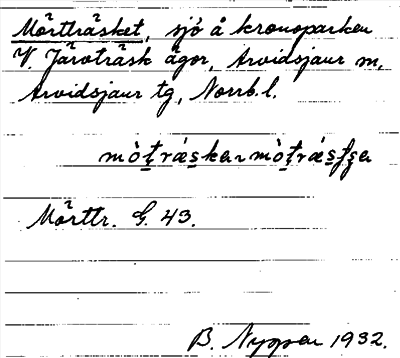 Mörtträsket, sjö å kronoparken
V. Järvträsk ägor, Arvidsjaur sn,
Arvidsjaur tg, Norrb. l.
Mörttr. G. 43.
1932.